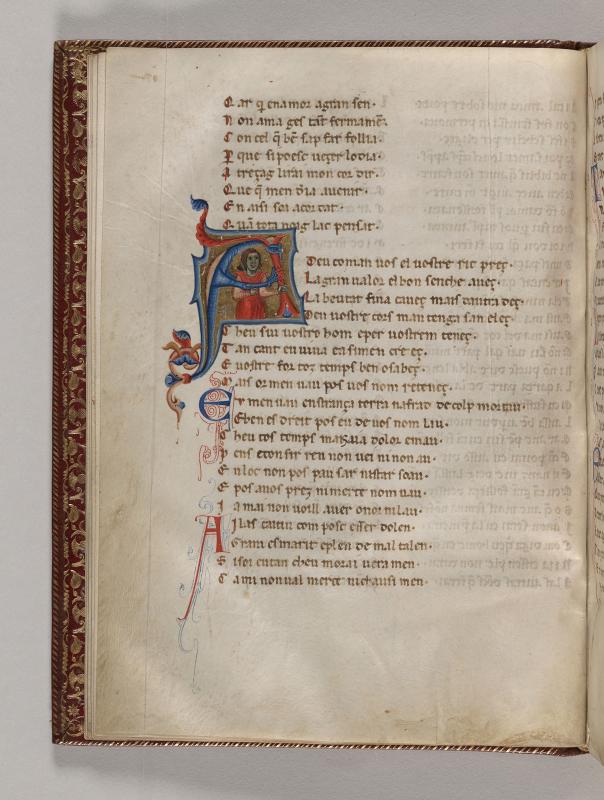 Car q̃ enamor agran sen·
Non ama ges tãt fermamẽ·
Con cel q̃ bẽ sap far follia·
Per que sipoese ueçer lodia·
A treçag lirai mon cor dir·
Que q̃ men dia auenir·
En aisi soi acordat·
Deu coman uos el uostre ric preç·
La gran ualor el bon senche aueç·
La beutat fina caueç mais cautra deç·
Den uostre cors man tenga san eleç·
Cheu sui uostre hom eper uostrem teneç·
Tan cant eu uiua ea fimen creeç·
E uostre for toz temps ben osabeç·
Mais or men uau pos uos nom reteneç·
Er men uau enstrança terra nafrad de colp mortau·
Eben es dreit pos eu de uos nom lau·
Cheu tos temps maᵹaia dolor emau·
Y ens econsir ren non uei ni non au·
En loc non pos pau sar nistar soau·
E pos auos preᵹ ni merce nom uau·
Ia mai non uoill auer onor ni lau·
Ailas caitiu com pose esser dolen·
Gram esmarit eplen de mal talen·
Si soi cutan cheu morai uera men·
Cami non ual merce nichausi men·